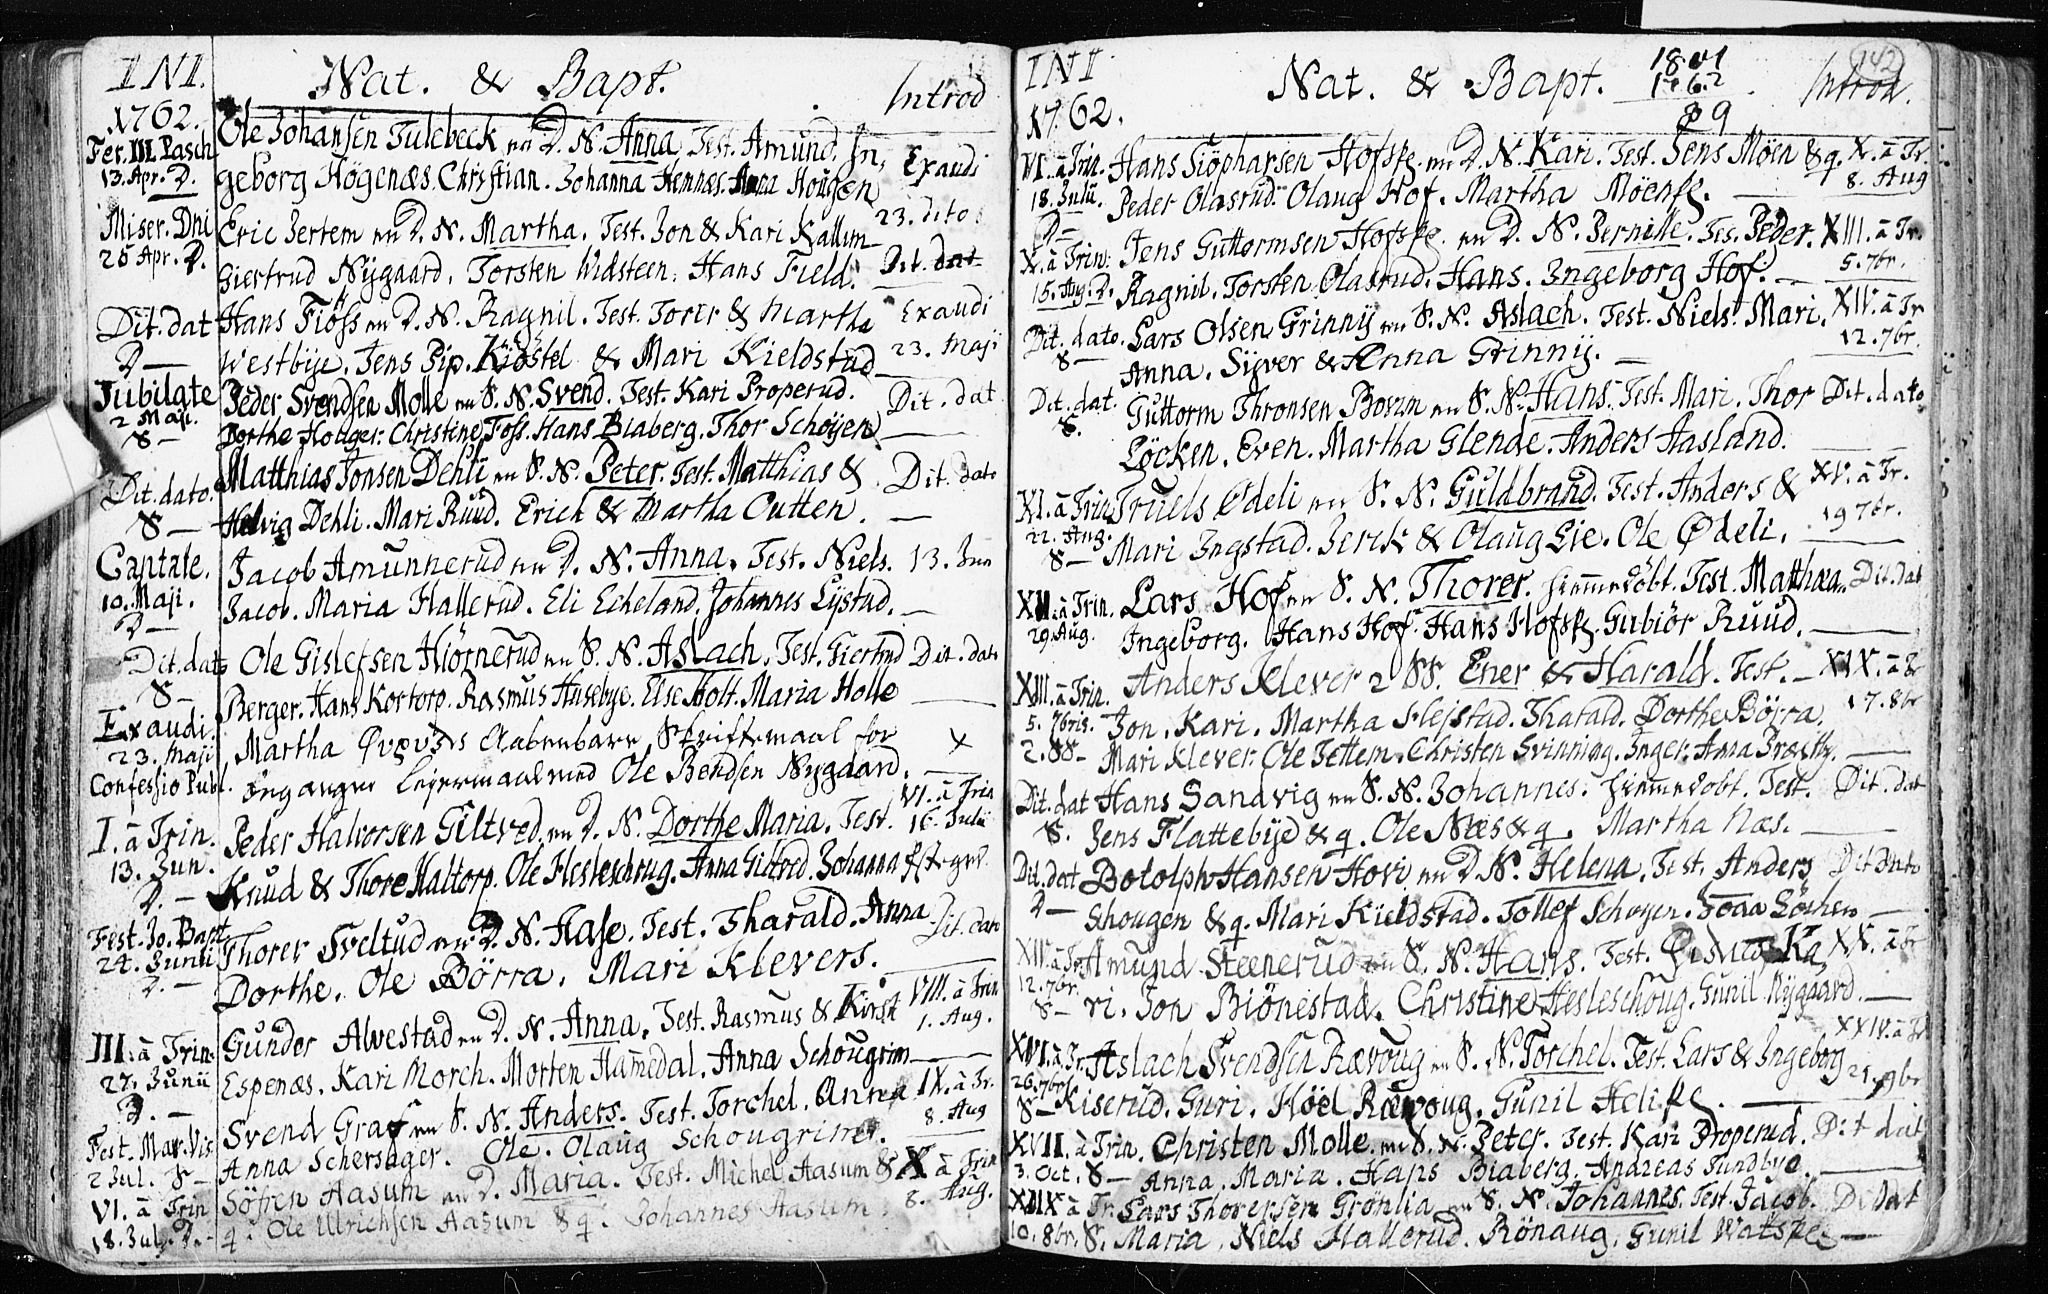 INI.
Nat. & Bapt.
Introd
1762.
Fer. III. Pasch
13. Apr. D.
Ole Johansen Tulebeck en D. N. Anna. Test. Amund. In-
geborg Högenæs. Christian. Johanna Hemnæs. Anna Hougen
Exaudi
23. dito
Miser. Dni
25 Apr. D.
Eric Jertem en D. N. Martha. Test. Jon & Kari Kallum
Giertrud Nygaard. Torsten Widsteen. Hans Field.
Dit. dat
Dit. dat
D —
Hans Fiöss en D. N. Ragnil. Test. Torer & Martha
Westbye. Jens Pip. Kiöstel & Mari Kieldstad
Exaudi
23. Maji
Jubilate
2 Maji.
S —
Peder Svendsen Molle en S. N. Svend. Test. Kari Properud.
Dorthe Houger. Christine Foss. Hans Biaberg. Thor Schöyen
Dit. dat
Dit. dato.
S —
Matthias Jonsen Dehli en S. N. Peter. Test. Matthias &
Helvig Dehli. Mari Ruud. Erich & Martha Outten.
Dit. dato
Cantate.
10. Maji.
D —
Jacob Amunnerud en D. N. Anna. Test. Niels.
Jacob. Maria Hallerud. Eli Echeland. Johannes Lystad.
13. Jun
Dit. dato
S —
Ole Gislefsen Hiörnerud en S. N. Aslach. Test. Giertrud
Berger. Hans Kortorp. Rasmus Husebye. Else Holt. Maria Holle
Dit. dato
Exaudi.
23. Maji
Confessio Publ.
Martha Aabenbare Skriftemaal for
Lejermaal med Ole Bendsen Nygaard.
X
I. à Trin.
13. Jun.
D. —
Peder Halvorsen Giltved en D. N. Dorthe Maria. Test.
Knud & Thore Haltorp. Ole Hesleschoug. Anna Giltved. Johanna
VI. à Trin
16. Julii
Fest. Jo. Bapt
24. Junii
D. —
Thorer Sveltud en D. N. Hase. Test. Tharald. Anna
Dorthe. Ole Börra. Mari Klevers.
Dit. dato
III. à Trin.
27. Junii
D. —
Gunder Alvestad en D. N. Anna. Test. Rasmus & Kirst
Espenæs. Kari Morch. Morten Hamedal. Anna Schougrim
VIII. à Trin
1. Aug.
Fest. Mar. Vis
2 Jul. S —
Svend Graf en S. N. Anders. Test. Torchel. Anna
Anna Schersager. Ole. Olaug Schougrimer.
IX. à Tr.
8. Aug
VI. à Trin
18. Jul. D. —
Söfren Aasum en D. Maria. Test. Michel Aasum &
q. Ole Ulrichsen Aasum & q. Johannes Aasum
X à Trin
8. Aug.
INI
Nat. & Bapt.
1841
1762
89
Introd.
142
1762.
VI. à Trin.
18. Julii.
D —
Hans Siöpharsen Hofspe. en D. N. Kari. Test. Jens Möen & q.
Peder Olasrud. Olaug Hof. Martha Möenspe.
X. à Tr.
8. Aug
X. à Trin.
15. Aug. D.
Jens Guttormsen Hofspe. en D. N. Pernille. Tes. Peder.
Ragnil. Torsten Olasrud. Hans. Ingeborg Hof.
XIII. à Tr.
5. 7br.
Dit. dato.
S —
Lars Olsen Grinny en S. N. Aslach. Test. Niels. Mari.
Anna. Syver & Anna Grinny.
XIV. à Tr
12. 7br.
Dit. dat.
S.
Guttorm Thronsen Boven en S. N. Hans. Test. Mari. Thor
Löcken. Even. Martha Glende. Anders Aasland.
Dit. dato
XI. à Trin
22. Aug.
S —
Truels Ödeli en S. N. Guldbrand. Test. Anders &
Mari Ingstad. Jerek & Olaug Lie. Ole Ødeli.
XV. à Tr.
19 7br.
XII. à Trin.
29. Aug.
Lars Hof en S. N. Thorer. hiemmedöbt. Test. Matthæa
Ingeborg. Hans Hof. Hans Hofspe. Gubiör Ruud.
Dit. dat
XIII. à Trin.
5. 7bris.
2. SS —
Anders Klever 2 SS. Ener & Harald. Test. —
Jon. Kari. Martha Flejstad. Tharald. Dorthe Börra.
Mari Klever. Ole Jettem. Christen Svinning. Inger. Anna Præsthy.
XIX. à Tr
17. 8br
Dit. dat
S.
Hans Sandvig en S. N. Johannes. hiemmedöbt. Test.
Jens Flattebye & q. Ole Næs & q. Martha Næs.
Dit. dat
Dit. dat
D —
Botolph Hansen Hovi en D. N. Helena. Test. Anders
Schougen & q. Mari Kieldstad. Tollef Schøyen. Löchen
Dit. Dato
XIV. à Tr
12. 7br.
S —
Amund Steenerud en S. N. Hans. Test. Ka
ri. Jon Biönestad. Christine Hesleschoug. Gunil Nygaard.
XX. à Tr
XVI. à Tr.
26. 7br.
S —
Aslach Svendsen Rævoug en S. N. Torchel. Test. Lars & Ingeborg
Kiserud. Guri. Höel Rævoug. Gunil Helispe.
XXIV. à Tr
21. 9br
XVII. à Trin.
3. Oct. S —
Christen Molle en S. N. Peter. Test. Kari Properud.
Anna. Maria. Hans Biaberg. Andreas Tundbye.
Dit dat
XIIX à Tr.
10. 8br. S.
Lars Thoresen Grönlia en S. N. Johannes. Test. Jacob.
Maria. Niels Hallerud. Rönaug. Gunil Watspe
Di dat